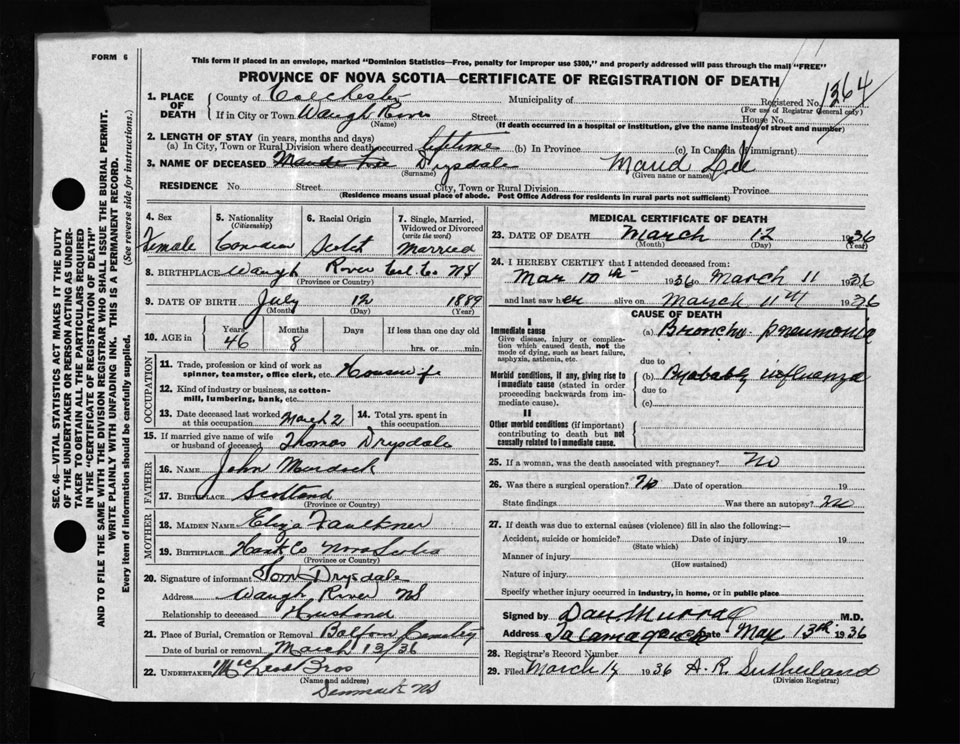 FORM 6
This form if placed in an envelope, marked "Dominion Statistics—Free, penalty for improper use $300," and properly addressed will pass through the mail "FREE"
PROVINCE OF NOVA SCOTIA—CERTIFICATE OF REGISTRATION OF DEATH
1. PLACE OF DEATH { County of Colchester Municipality of Registered No. 1364
(For use of Registrar General only)
If in City or Town Waugh River Street House No.
(Name) (If death occurred in a hospital or institution, give the name instead of street and number)
2. LENGTH OF STAY (in years, months and days)
(a) In City, Town or Rural Division where death occurred lifetime (b) In Province (c) In Canada (if immigrant)
3. NAME OF DECEASED Drysdale Maud
(Surname) (Given name or names)
RESIDENCE No. Street City, Town or Rural Division Province
(Residence means usual place of abode. Post Office Address for residents in rural parts not sufficient)
4. Sex Female
5. Nationality (Citizenship) Canadian
6. Racial Origin Scotch
7. Single, Married, Widowed or Divorced (write the word) Married
8. BIRTHPLACE Waugh River Col. Co. NS
(Province or Country)
9. DATE OF BIRTH July 12 1889
(Month) (Day) (Year)
10. AGE in { Years 46 Months 8 Days If less than one day old hrs. or min.
OCCUPATION
11. Trade, profession or kind of work as spinner, teamster, office clerk, etc. Housewife
12. Kind of industry or business, as cotton-mill, lumbering, bank, etc.
13. Date deceased last worked at this occupation March 2
14. Total yrs. spent in this occupation
15. If married give name of wife or husband of deceased Thomas Drysdale
FATHER
16. NAME John Murdock
17. BIRTHPLACE Scotland
(Province or Country)
MOTHER
18. MAIDEN NAME Eliza Faulkner
19. BIRTHPLACE Hants Co Nova Scotia
(Province or Country)
20. Signature of informant Tom Drysdale
Address Waugh River NS
Relationship to deceased Husband
21. Place of Burial, Cremation or Removal Balfron Cemetery
Date of burial or removal March 13/36
22. UNDERTAKER McLeod Bros
(Name and address)
Denmark NS
MEDICAL CERTIFICATE OF DEATH
23. DATE OF DEATH March 12 1936
(Month) (Day) (Year)
24. I HEREBY CERTIFY that I attended deceased from:
Mar 10th 1936 to March 11 1936
and last saw her alive on March 11th 1936
CAUSE OF DEATH
I
Immediate cause
Give disease, injury or complication which caused death, not the mode of dying, such as heart failure, asphyxia, asthenia, etc.
(a) Broncho pneumonia
due to
Morbid conditions, if any, giving rise to immediate cause (stated in order proceeding backwards from immediate cause).
(b) Probably influenza
due to
(c)
II
Other morbid conditions (if important) contributing to death but not causally related to immediate cause.
25. If a woman, was the death associated with pregnancy? No
26. Was there a surgical operation? No Date of operation 19
State findings Was there an autopsy? No
27. If death was due to external causes (violence) fill in also the following:—
Accident, suicide or homicide? Date of injury 19
(State which)
Manner of injury
(How sustained)
Nature of injury
Specify whether injury occurred in industry, in home, or in public place
Signed by Dan Murray M.D.
Address Tatamagouche Date Mar 13th 1936
28. Registrar's Record Number
29. Filed March 1936 A. R. Sutherland
(Division Registrar)
SEC. 46—VITAL STATISTICS ACT MAKES IT THE DUTY
OF THE UNDERTAKER OR PERSON ACTING AS UNDER-
TAKER TO OBTAIN ALL THE PARTICULARS REQUIRED
IN THE "CERTIFICATE OF REGISTRATION OF DEATH"
AND TO FILE THE SAME WITH THE DIVISION REGISTRAR WHO SHALL ISSUE THE BURIAL PERMIT.
WRITE PLAINLY WITH UNFADING INK. THIS IS A PERMANENT RECORD.
Every item of information should be carefully supplied. (See reverse side for instructions.)